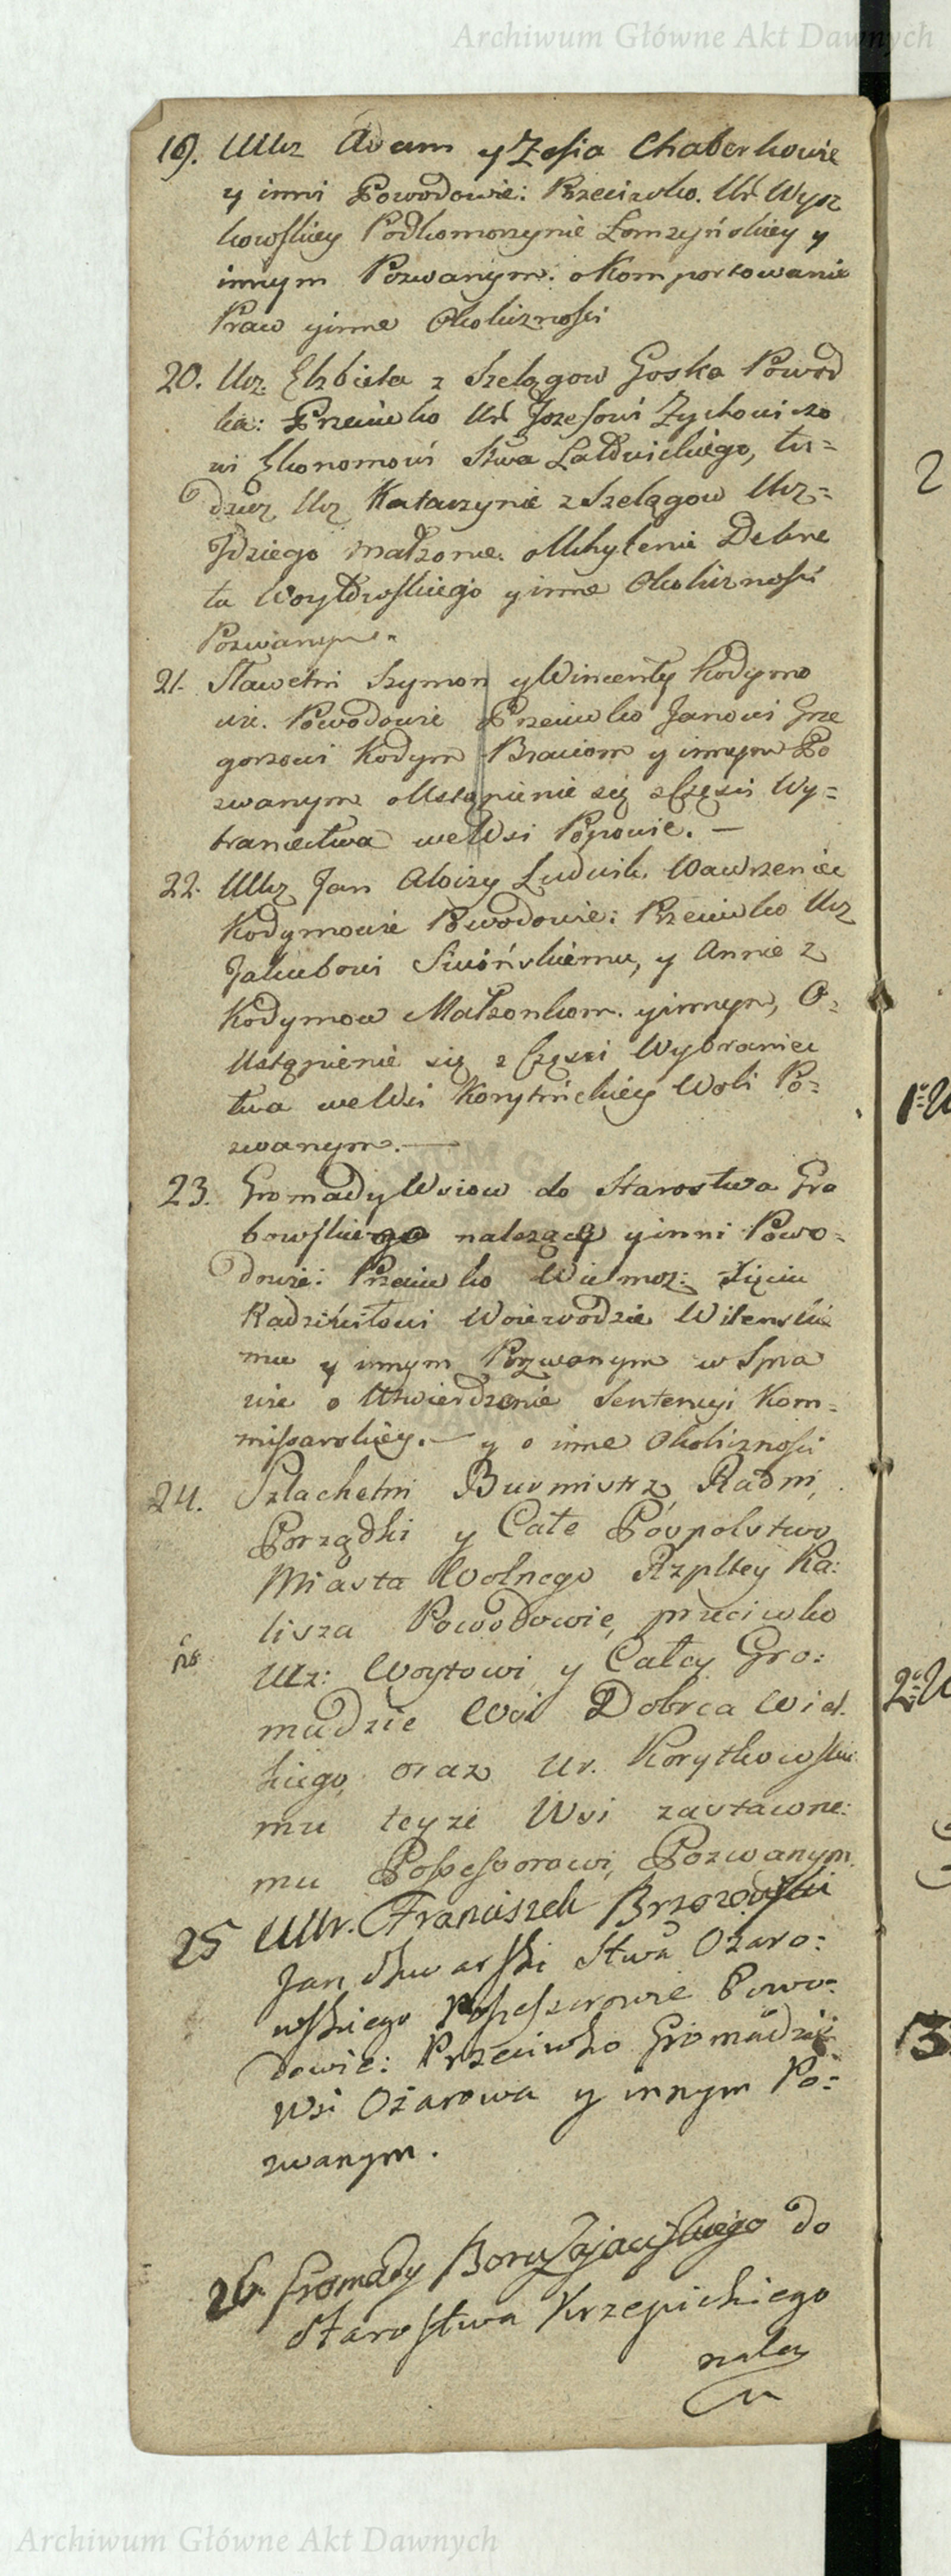 Archiwum Główne Akt Dawnych
19. UUrz Adam y Zofia Chaberkowie
y inni Powodowie: Przeciwko. Ur Wysz
kowskiey Podkomorzynie Łomżyńskiey y
innym Pozwanym. o Komportowanie
Praw y inne Okoliczności
20. Urz. Elżbieta z Szelągow Goska Powod
ka: Przeciwko Ur Jozefowi Zychowiczo
wi Ekonomowi Stwa
dziez Urz Katarzynie z Szelągow Urz=
Jdziego małżonce. o Uchylenie Dekre
tu y inne Okoliczności
Pozwanym.
21. Sławetni Szymon y Wincenty Kodymo
wie. Powodowie Przeciwko Janowi Grze
gorzowi Kodym Braciom y innym Po
zwanym o Ustąpienie się z Części Wy=
braniectwa we Wsi Popowie. —
22. UUrz Jan Aloizy Ludwik. Wawrzeniec
Kodymowie Powodowie: Przeciwko Urz
Jakubowi Swińskiemu, y Annie z
Kodymow Małżonkom. y innym, O=
Ustąpienie się z Części Wybraniec
twa we Wsi Korytnickiey Woli Po=
zwanym. —
23. Gromady Wsiow do Starostwa Gra
bowskiego należący y inni Powo=
dowie: Przeciwko Wielmoż: Xięciu
Radziwiłłowi Woiewodzie Wilenskie
mu y innym Pozwanym w Spra
wie o Utwierdzenie Sentencyi Kom=
missarskiey. — y o inne Okoliczności
24. Szlachetni Burmistrz, Radni,
Porządki y Całe Pospolstwo
Miasta Wolnego Rzpltey Ka:
lisza Powodowie, przeciwko
Urz: Woytowi y Całey Gro:
madzie Wsi Dobrca Wiel
kiego, oraz Ur. Korytkowskie
mu teyże Wsi zastawne:
mu Possessorowi, Pozwanym
25 UUr. Franciszek Brzozowski
Jan Skwarski Stwa Ożaro=
wskiego Possessorowie Powo=
dowie: Przeciwko Gromadzie
Wsi Ożarowa y innym Po=
zwanym.
26. Gromady Boru Zajacińskiego do
Starostwa Krzepickiego
należ
2
1º U
2º U
3
Archiwum Główne Akt Dawnych